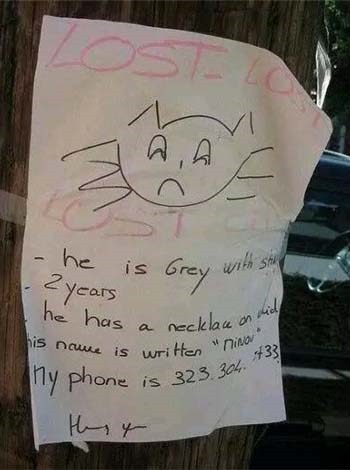 LOST - LOST
LOST
- he is Grey with
- 2 years
he has a necklace on
his name is written "minou"
My phone is 323.304.